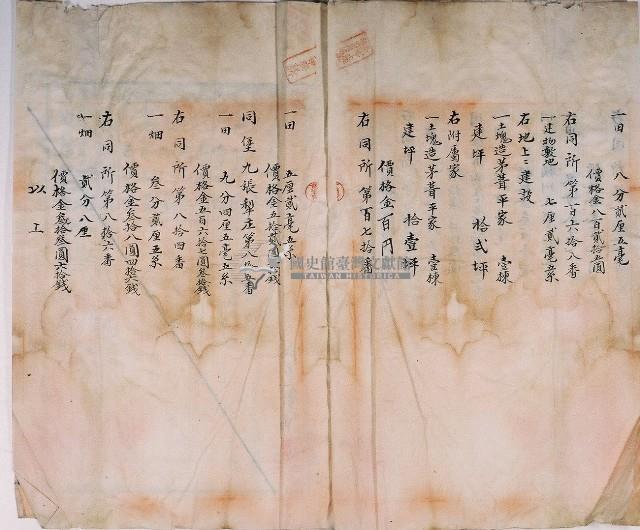 一田　八分貳厘五毫
價格金八百貳拾五圓
右同所第百六拾八番
一建物敷地　七厘貳毫五糸
右地上ニ建設
一土塊造茅葺平家　壹棟
建坪　拾貳坪
右附屬家
一土塊造茅葺平家　壹棟
建坪　拾壹坪
價格金百円
右同所第百七拾番
一田　五厘貳毫五糸
價格金五拾貳圓六錢
同堡九張犁庄第八番
一田　九分四厘五毫五糸
價格金五百六拾七圓參拾錢
右同所第八拾四番
一畑　叁分貳厘五糸
價格金叁拾八圓四拾錢
右同所第八拾六番
一畑　貳分八厘
價格金叁拾叁圓六拾錢
以上
國史館臺灣文獻館
TAIWAN HISTORICA